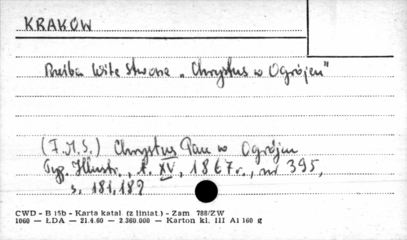 KRAKÓW
Rzeźba Wita Stwosza „Chrystus w Ogrójcu"
(F.M.S.) Chrystus Pan w Ogrójcu
Tyg. Illustr., t. XV, 1867 r., nr 395,
s. 181, 182
CWD - B 15b - Karta katal (z liniat.) - Zam 788/ZW
1060 — ŁDA — 21.4.60 — 2.360.000 — Karton kl. III A1 160 g